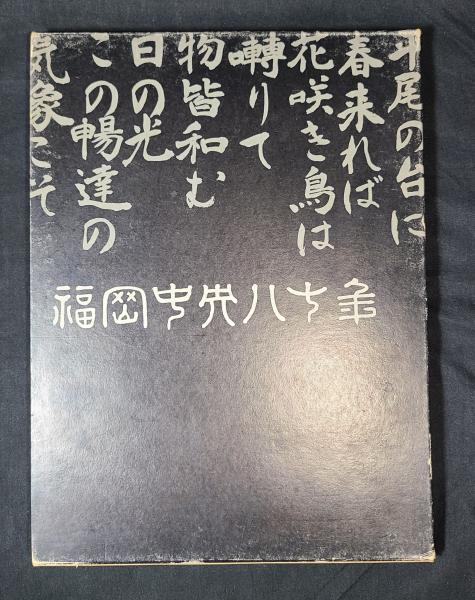 平尾の台に
春来れば
花咲き鳥は
囀りて
物皆和む
日の光
この暢達の
気象こそ
福岡中央八十年